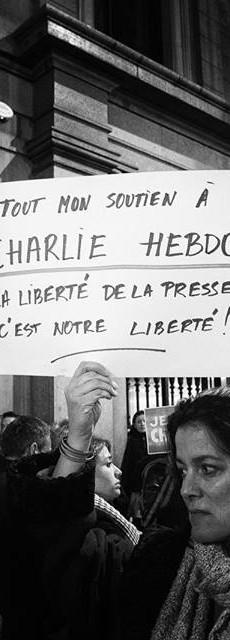 TOUT MON SOUTIEN À
CHARLIE HEBDO
LA LIBERTÉ DE LA PRESSE
C'EST NOTRE LIBERTÉ!
JE